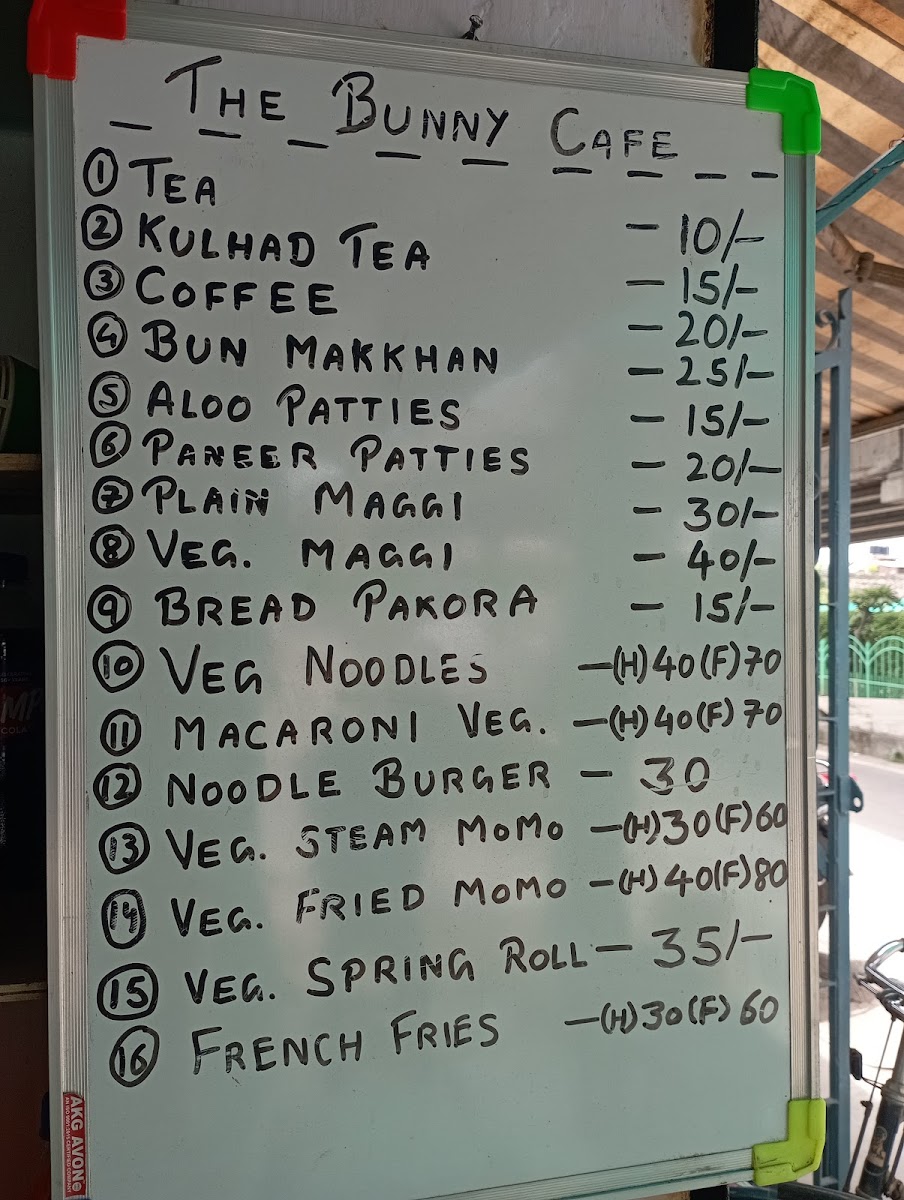 THE BUNNY CAFE
① TEA — 10/-
② KULHAD TEA — 15/-
③ COFFEE — 20/-
④ BUN MAKKHAN — 25/-
⑤ ALOO PATTIES — 15/-
⑥ PANEER PATTIES — 20/-
⑦ PLAIN MAGGI — 30/-
⑧ VEG. MAGGI — 40/-
⑨ BREAD PAKORA — 15/-
⑩ VEG NOODLES —(H)40(F)70
⑪ MACARONI VEG. —(H)40(F)70
⑫ NOODLE BURGER — 30
⑬ VEG. STEAM MOMO —(H)30(F)60
⑭ VEG. FRIED MOMO —(H)40(F)80
⑮ VEG. SPRING ROLL — 35/-
⑯ FRENCH FRIES —(H)30(F)60
AKG AVON
COLA